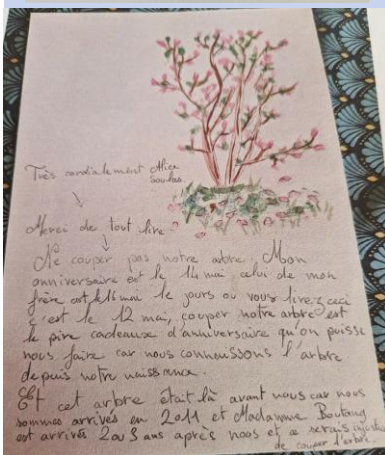 Très cordialement Alice
Soulas.
Merci de tout lire
Ne couper pas notre arbre. Mon
anniversaire est le 14 mai, celui de mon
frère est le 16 mai le jours ou vous lirez ceci
c'est le 12 mai, couper notre arbre est
le pire cadeaux d'anniversaire qu'on puisse
nous faire car nous connaissons l'arbre
depuis notre naissance.
Et cet arbre était là avant nous car nous
sommes arrivés en 2011 et Madamme
est arrivés 2 ou 3 ans après nous et ce serais injuste
de couper l'arbre.